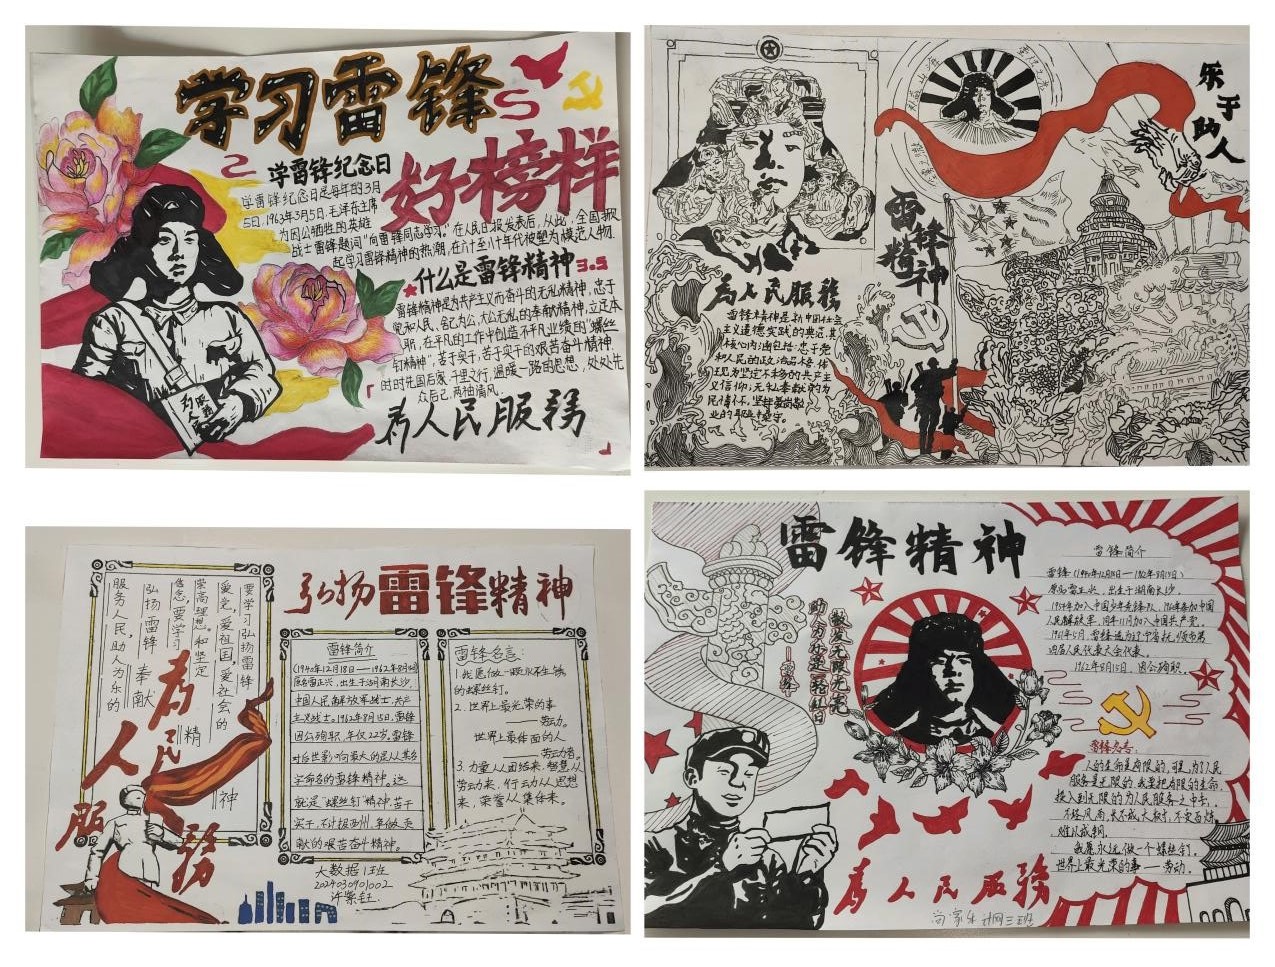 学习雷锋
好榜样
学雷锋纪念日
学雷锋纪念日是每年的3月
5日,1963年3月5日,毛泽东主席
为因公牺牲的英雄
战士雷锋题词"向雷锋同志学习。"在人民日报发表后,从此,全国掀
起学习雷锋精神的热潮,在六十至八十年代被塑为模范人物
什么是雷锋精神3.5
雷锋精神是为共产主义而奋斗的无私精神,忠于
党和人民、舍己为公、大公无私的奉献精神,立足本
职,在平凡的工作中创造不平凡业绩的"螺丝
钉精神",苦于实干,苦于实干的艰苦奋斗精神
为人民服务
乐于
助人
雷锋
精神
为人民服務
雷锋精神是新中国社会
主义道德实践的典范,其
核心内涵包括:忠于党
和人民的政治品格,体
现为坚定不移的共产主
义信仰;无私奉献的为
民情怀,坚持爱岗敬
业的职业操守。
弘扬雷锋精神
要学习弘扬雷锋
爱党,爱祖国,爱社会的
崇高理想和坚定
信念,要学习
弘扬雷锋奉献
服务人民,助人为乐的
精
神
为
人民
服
务
雷锋简介
(1940年12月18日——1962年8月15日)
原名雷正兴,出生于湖南长沙,
中国人民解放军战士,共产
主义战士。1962年8月15日,雷锋
因公殉职,年仅22岁。雷锋
对后世影响最大的是以其名
字命名的雷锋精神。这
就是"螺丝钉"精神,苦干
献的艰苦奋斗精神。
雷锋名言:
1.我愿做一颗永不生锈
的螺丝钉。
2.世界上最光荣的事
——劳动。
世界上最体面的人
——劳动者。
3.力量从团结来,智慧从
劳动来,行动从思想
来,荣誉从集体来。
大数据1班
雷锋精神
雷锋简介
雷锋(1940年12月18日—1962年8月15日)
原名雷正兴,出生于湖南长沙,
1954年加入中国少年先锋队,1960年参加中国
人民解放军,同年11月加入中国共产党。
四届人民代表大会代表。
1962年8月15日,因公殉职。
散发无限光亮
助力亦是一轮红日
—雷锋
雷锋名言:
人的生命是有限的,可是,为人民
服务是无限的,我要把有限的生命,
投入到无限的为人民服务之中去。
不经风雨,长不成大树,不受百炼,
难以成钢。
我愿永远做一个螺丝钉。
世界上最光荣的事——劳动。
為人民服務